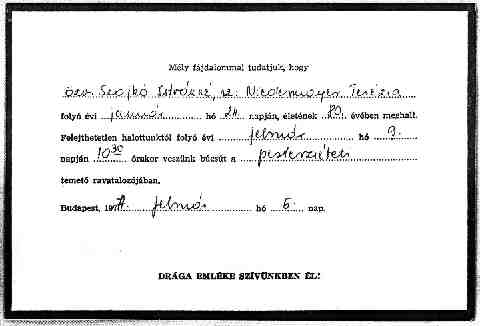 Mély fájdalommal tudatjuk, hogy
özv. Szojkó Istvánné, sz: Niedermayer Terézia
folyó évi január hó 24 napján, életének 80. évében meghalt.
Felejthetetlen halottunktól folyó évi február hó 9.
napján 10 30 órakor veszünk búcsút a pesterzsébeti
temető ravatalozójában.
Budapest, 197 február hó 5. nap.
DRÁGA EMLÉKE SZÍVÜNKBEN ÉL!